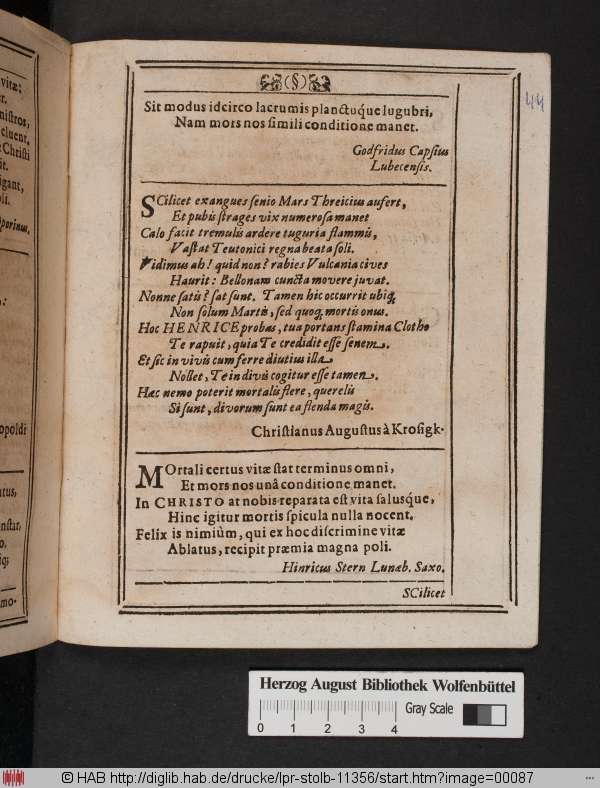 vitæ:
nistros,
cluent.
Christi
it.
igant,
oli.
oporinus.
opoldi
mo-
(§)
44
Sit modus idcirco lacrumis planctuque lugubri,
Nam mors nos simili conditione manet.
Godfridus Capsius
Lubecensis.
SCilicet exangues senio Mars Threicius aufert,
Et pubis strages vix numerosa manet
Calo facit tremulis ardere tuguria flammis,
Vastat Teutonici regna beata soli.
Vidimus ah! quid non? rabies Vulcania cives
Haurit: Bellonam cuncta movere juvat.
Nonne satis? sat sunt. Tamen hic occurrit ubiq;
Non solum Martis, sed quoq; mortis onus.
Hoc HENRICE probas, tua portans stamina Clotho
Te rapuit, quia Te credidit esse senem.
Et sic in vivis cum ferre diutius illa
Nollet, Te in divis cogitur esse tamen.
Hæc nemo poterit mortalis flere, querelis
Si sunt, divorum sunt ea flenda magis.
Christianus Augustus à Krosigk.
MOrtali certus vitæ stat terminus omni,
Et mors nos unâ conditione manet.
In CHRISTO at nobis reparata est vita salusque,
Hinc igitur mortis spicula nulla nocent.
Felix is nimiùm, qui ex hoc discrimine vitæ
Ablatus, recipit præmia magna poli.
Hinricus Stern Lunæb. Saxo.
SCilicet
Herzog August Bibliothek Wolfenbüttel
0 1 2 3 4
Gray Scale
© HAB http://diglib.hab.de/drucke/lpr-stolb-11356/start.htm?image=00087